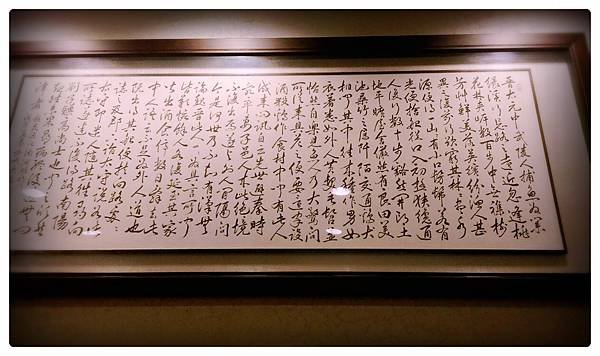 晉太元中武陵人捕魚為業
緣溪行忘路之遠近忽逢桃
花林夾岸數百步中無雜樹
芳草鮮美落英繽紛漁人甚
異之復前行欲窮其林林盡水
源便得一山山有小口髣髴若有
光便捨船從口入初極狹纔通
人復行數十步豁然開朗土
地平曠屋舍儼然有良田美
池桑竹之屬阡陌交通雞犬
相聞其中往來種作男女
衣著悉如外人黃髮垂髫並
怡然自樂見漁人乃大驚問
所從來具答之便要還家設
酒殺雞作食村中聞有此人
咸來問訊自云先世避秦時
亂率妻子邑人來此絕境
不復出焉遂與外人間隔問
今是何世乃不知有漢無
論魏晉此人一一為具言所聞
皆歎惋餘人各復延至其家
皆出酒食停數日辭去此
中人語云不足為外人道也
既出得其船便扶向路處處
誌之及郡下詣太守說如
此太守即遣人隨其往尋向
所誌遂迷不復得路南陽
劉子驥高尚士也聞之欣然
規往未果尋病終後遂無問
津者